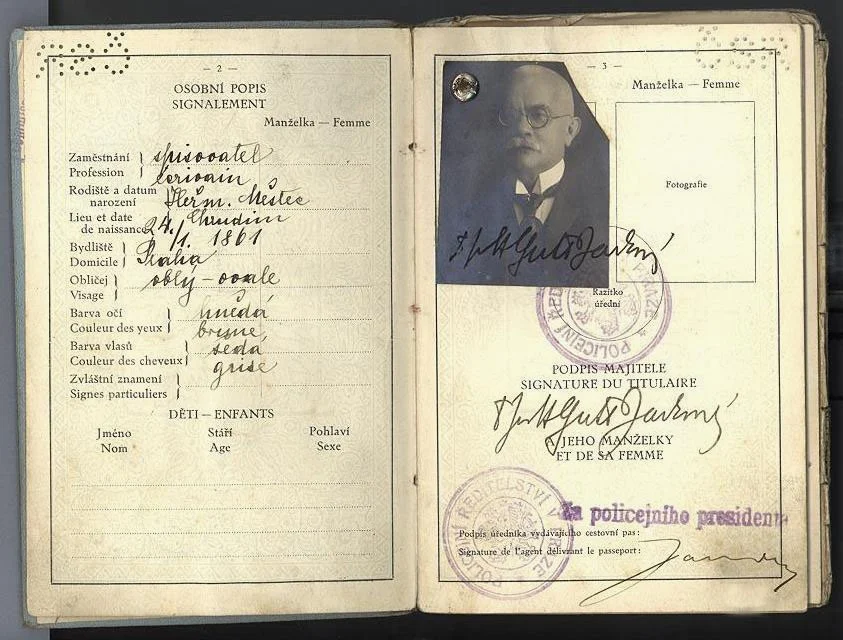 — 2 —
OSOBNÍ POPIS
SIGNALEMENT
Manželka — Femme
Zaměstnání spisovatel
Profession écrivain
Rodiště a datum narození Heřm. Městec
Lieu et date de naissance Chrudim
24./1. 1861
Bydliště
Domicile Praha
Obličej
Visage oblý - ovale
Barva očí hnědá
Couleur des yeux brune
Barva vlasů šedá
Couleur des cheveux grise
Zvláštní znamení
Signes particuliers
DĚTI — ENFANTS
Jméno Stáří Pohlaví
Nom Age Sexe
— 3 —
Manželka — Femme
Fotografie
Guth Jarkovský
Razítko
úřední
POLICEJNÍ ŘED PRAZE
PODPIS MAJITELE
SIGNATURE DU TITULAIRE
Guth Jarkovský
A JEHO MANŽELKY
ET DE SA FEMME
POLICEJNÍ ŘEDITELSTVÍ V PRAZE
Za policejního presidenta
Podpis úředníka vydávajícího cestovní pas:
Signature de l'agent délivrant le passeport: